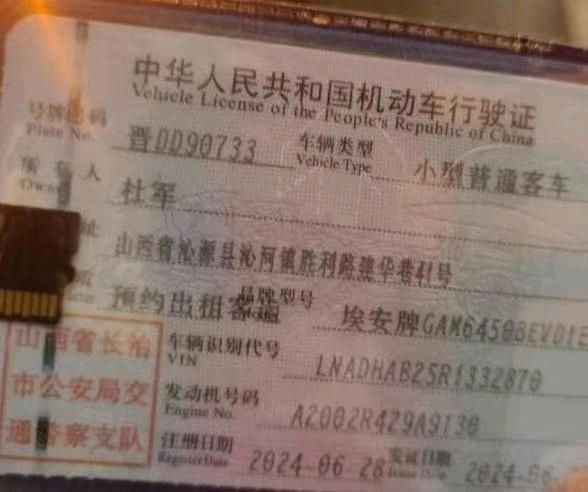 中华人民共和国机动车行驶证
Vehicle License of the People's Republic of China
号牌号码 晋DD90733 车辆类型 小型普通客车
Plate No. Vehicle Type
所有人 杜军
Owner
址 山西省沁源县沁河镇胜利路建华巷41号
质 预约出租客运 品牌型号 埃安牌GAM6450BEVD1E
山西省长治 车辆识别代号 LNADHAB25R1332870
VIN
市公安局交 发动机号码 A2002R429A9130
Engine No.
通警察支队 注册日期 2024-06-28 发证日期 2024-06
Register Date Issue Date